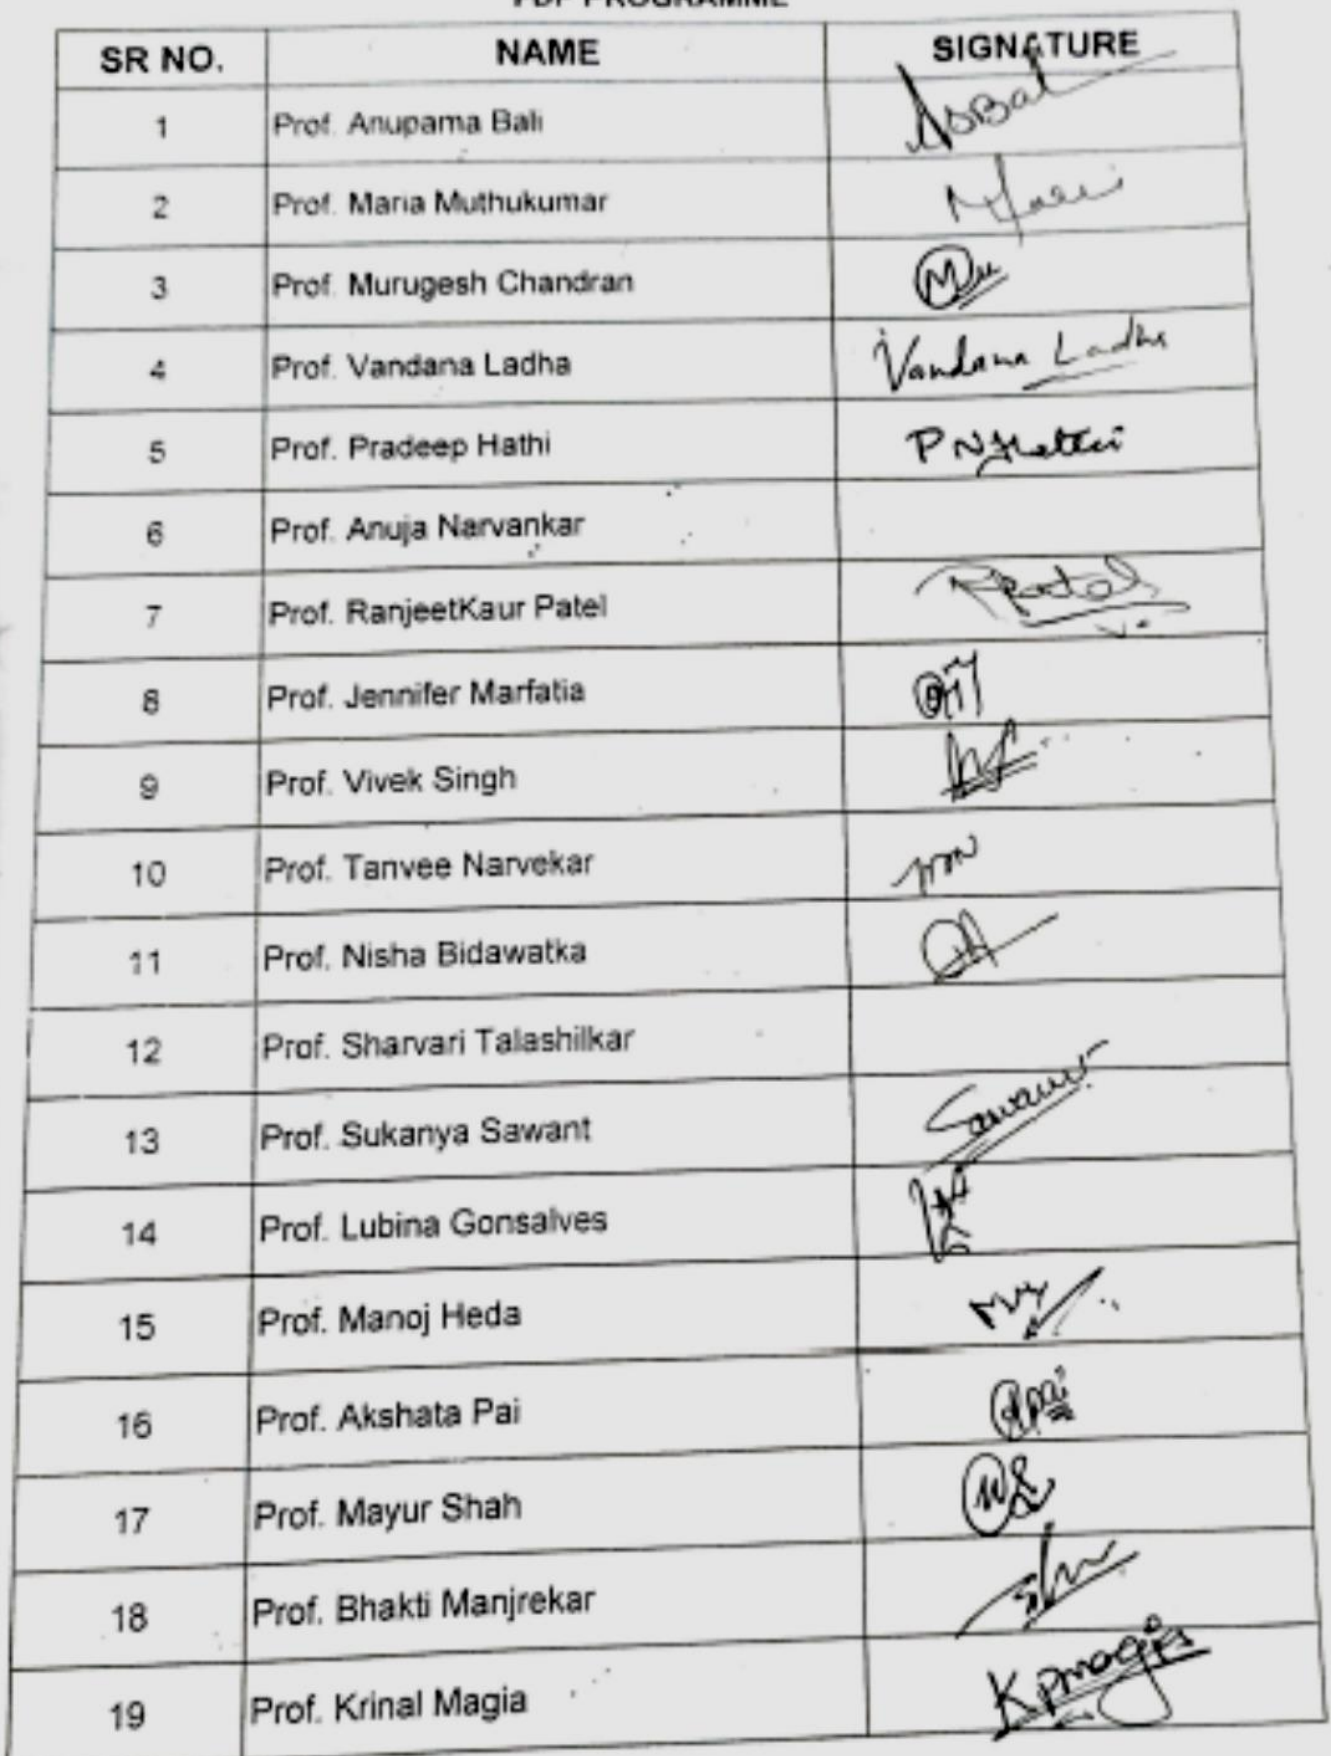 PDP PROGRAMME
SR NO. NAME SIGNATURE
1 Prof. Anupama Bali
2 Prof. Maria Muthukumar
3 Prof. Murugesh Chandran
4 Prof. Vandana Ladha Vandana Ladha
5 Prof. Pradeep Hathi
6 Prof. Anuja Narvankar
7 Prof. RanjeetKaur Patel
8 Prof. Jennifer Marfatia
9 Prof. Vivek Singh
10 Prof. Tanvee Narvekar
11 Prof. Nisha Bidawatka
12 Prof. Sharvari Talashilkar
13 Prof. Sukanya Sawant Sawant
14 Prof. Lubina Gonsalves
15 Prof. Manoj Heda
16 Prof. Akshata Pai
17 Prof. Mayur Shah
18 Prof. Bhakti Manjrekar
19 Prof. Krinal Magia Kpmagia